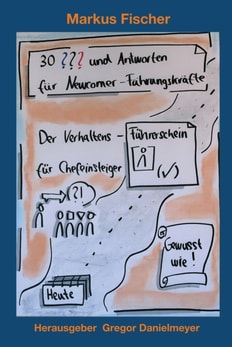 Markus Fischer
30 ??? und Antworten
für Newcomer-Führungskräfte
Der Verhaltens-Führerschein
für Chefeinsteiger
(✓)
(?!)
Gewusst
wie!
Heute
Herausgeber Gregor Danielmeyer